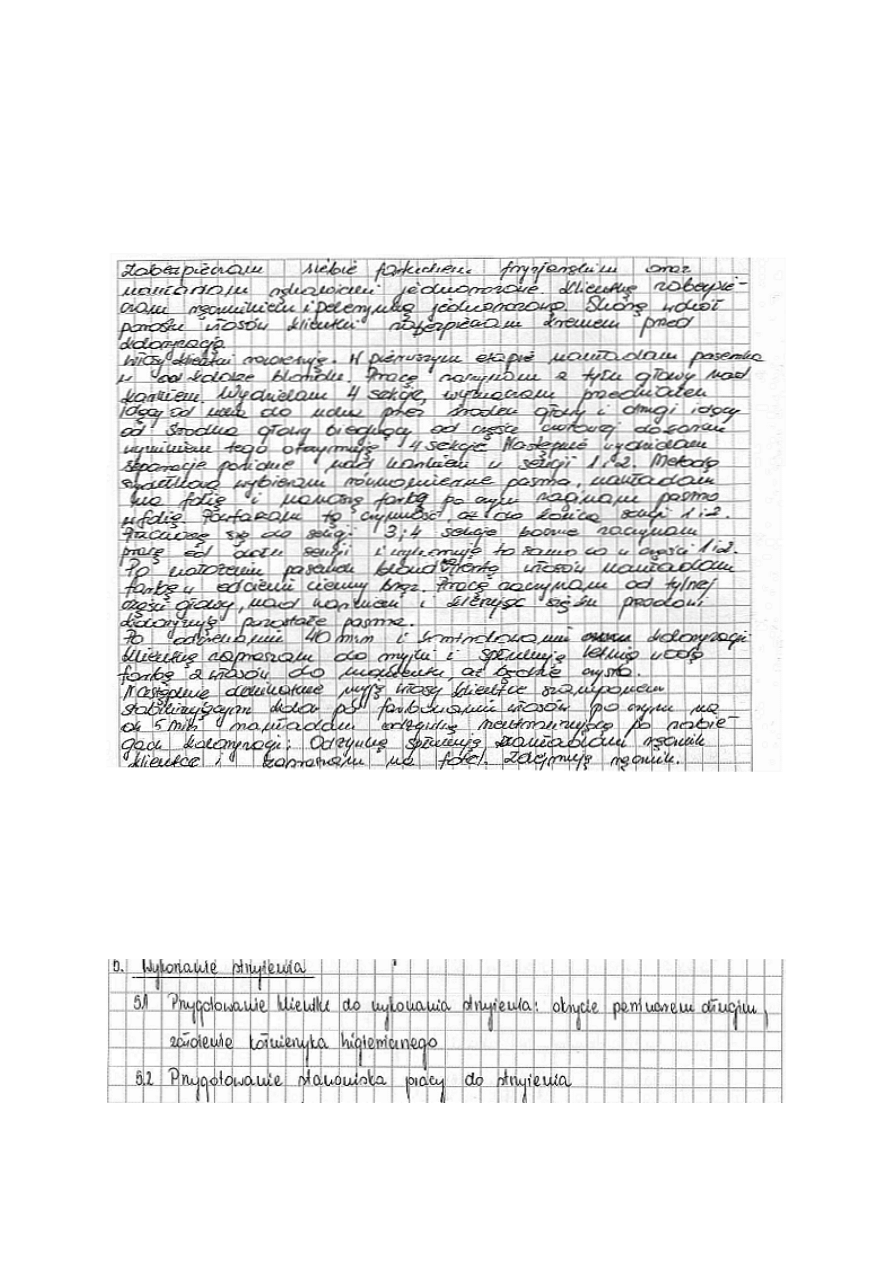 Zabezpieczam siebie fartuchem fryzjerskim oraz
nakładam rękawiczki jednorazowe klientkę zabezpie-
czam ręcznikiem i pelerynką jednorazową. Skórę wokół
porostu włosów klientki zabezpieczam kremem przed
koloryzacją
Włosy klientki rozczesuję. W pierwszym etapie nakładam pasemka
w kolorze blondu. Pracę zaczynam z tyłu głowy nad
karkiem. Wydzielam 4 sekcje, wyznaczam przedziałek
idący od ucha do ucha przez środek głowy i drugi idący
od środka głowy biegnący od części do
wyniku tego otrzymuję 4 sekcje Następnie wydzielam
separacje poziome nad karkiem w sekcji 1 i 2. Metodą
wybieram równomierne pasma, nakładam
na folię i nanoszę farbę po czym zaginam pasmo
w folię. Powtarzam tę czynność, aż do końca sekcji 1 i 2.
się do sekcji 3 i 4 sekcje boczne zaczynam
pracę od dołu sekcji i wykonuję to samo co w części 1 i 2.
Po nałożeniu pasemek blond włosów nakładam
farbę w odcieniu ciemny brąz. Pracę zaczynam od tylnej
części głowy, nad karkiem i kierując się ku przodowi
koloryzuję pozostałe pasma.
Po odczekaniu 40 min i skontrolowaniu koloryzacji
klientkę zapraszam do myjki i spłukuję letnią wodą
farbę z włosów do momentu, aż będzie czysta.
Następnie delikatnie myję włosy klientce szamponem
stabilizującym kolor po farbowaniu włosów po czym na
ok 5 min nakładam odżywkę neutralizującą po zabie-
gach koloryzacji. Odżywkę spłukuję zakładam ręcznik
klientce i zapraszam na fotel. Zdejmuję ręcznik.
5. Wykonanie strzyżenia
5.1 Przygotowanie klientki do wykonania strzyżenia: okrycie peniuarem długim,
założenie kołnierzyka higienicznego
5.2 Przygotowanie stanowiska pracy do strzyżenia